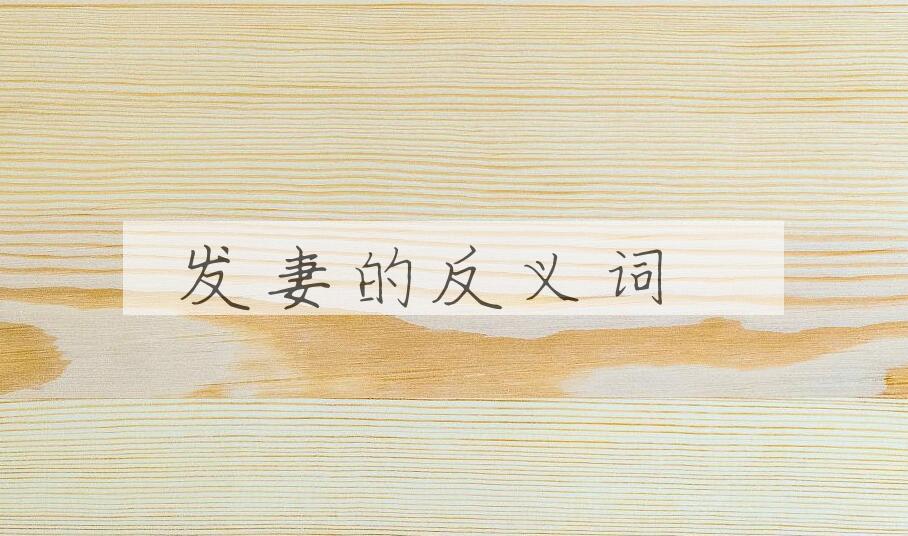 发妻的反义词